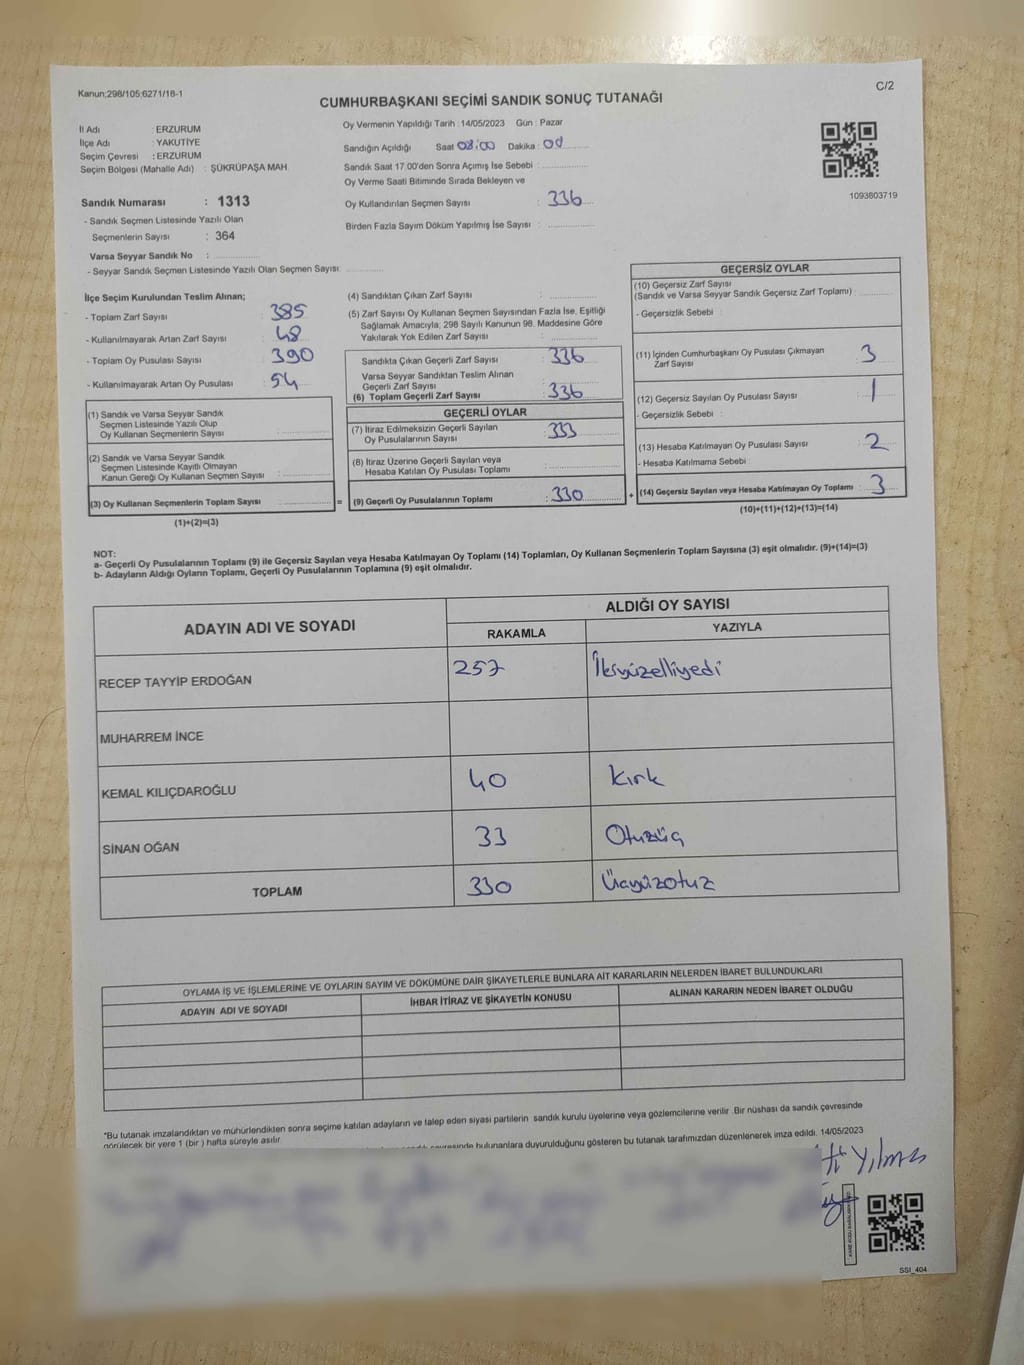 Kanun;298/105;6271/18-1
C/2
CUMHURBAŞKANI SEÇİMİ SANDIK SONUÇ TUTANAĞI
İl Adı : ERZURUM
İlçe Adı : YAKUTİYE
Seçim Çevresi : ERZURUM
Seçim Bölgesi (Mahalle Adı) : ŞÜKRÜPAŞA MAH.
Sandık Numarası : 1313
- Sandık Seçmen Listesinde Yazılı Olan
Seçmenlerin Sayısı : 364
Varsa Seyyar Sandık No :
- Seyyar Sandık Seçmen Listesinde Yazılı Olan Seçmen Sayısı:
Oy Vermenin Yapıldığı Tarih : 14/05/2023 Gün : Pazar
Sandığın Açıldığı Saat 08:00 Dakika : 00
Sandık Saat 17.00'den Sonra Açımış İse Sebebi :
Oy Verme Saati Bitiminde Sırada Bekleyen ve
Oy Kullandırılan Seçmen Sayısı : 336
Birden Fazla Sayım Döküm Yapılmış İse Sayısı :
1093803719
İlçe Seçim Kurulundan Teslim Alınan;
- Toplam Zarf Sayısı : 385
- Kullanılmayarak Artan Zarf Sayısı : 48
- Toplam Oy Pusulası Sayısı : 390
- Kullanılmayarak Artan Oy Pusulası : 54
(1) Sandık ve Varsa Seyyar Sandık
Seçmen Listesinde Yazılı Olup
Oy Kullanan Seçmenlerin Sayısı :
(2) Sandık ve Varsa Seyyar Sandık
Seçmen Listesinde Kayıtlı Olmayan
Kanun Gereği Oy Kullanan Seçmen Sayısı :
(3) Oy Kullanan Seçmenlerin Toplam Sayısı =
(1)+(2)=(3)
(4) Sandıktan Çıkan Zarf Sayısı :
(5) Zarf Sayısı Oy Kullanan Seçmen Sayısından Fazla İse, Eşitliği
Sağlamak Amacıyla; 298 Sayılı Kanunun 98. Maddesine Göre
Yakılarak Yok Edilen Zarf Sayısı :
Sandıkta Çıkan Geçerli Zarf Sayısı : 336
Varsa Seyyar Sandıktan Teslim Alınan
Geçerli Zarf Sayısı :
(6) Toplam Geçerli Zarf Sayısı : 336
GEÇERLİ OYLAR
(7) İtiraz Edilmeksizin Geçerli Sayılan
Oy Pusulalarının Sayısı : 333
(8) İtiraz Üzerine Geçerli Sayılan veya
Hesaba Katılan Oy Pusulası Toplamı :
(9) Geçerli Oy Pusulalarının Toplamı : 330 +
GEÇERSİZ OYLAR
(10) Geçersiz Zarf Sayısı
(Sandık ve Varsa Seyyar Sandık Geçersiz Zarf Toplamı) :
- Geçersizlik Sebebi :
(11) İçinden Cumhurbaşkanı Oy Pusulası Çıkmayan
Zarf Sayısı : 3
(12) Geçersiz Sayılan Oy Pusulası Sayısı : 1
- Geçersizlik Sebebi :
(13) Hesaba Katılmayan Oy Pusulası Sayısı : 2
- Hesaba Katılmama Sebebi :
(14) Geçersiz Sayılan veya Hesaba Katılmayan Oy Toplamı : 3
(10)+(11)+(12)+(13)=(14)
NOT:
a- Geçerli Oy Pusulalarının Toplamı (9) ile Geçersiz Sayılan veya Hesaba Katılmayan Oy Toplamı (14) Toplamları, Oy Kullanan Seçmenlerin Toplam Sayısına (3) eşit olmalıdır. (9)+(14)=(3)
b- Adayların Aldığı Oyların Toplamı, Geçerli Oy Pusulalarının Toplamına (9) eşit olmalıdır.
ADAYIN ADI VE SOYADI ALDIĞI OY SAYISI
RAKAMLA YAZIYLA
RECEP TAYYİP ERDOĞAN 257 İkiyüzelliyedi
MUHARREM İNCE
KEMAL KILIÇDAROĞLU 40 Kırk
SİNAN OĞAN 33 Otuzüç
TOPLAM 330 Üçyüzotuz
OYLAMA İŞ VE İŞLEMLERİNE VE OYLARIN SAYIM VE DÖKÜMÜNE DAİR ŞİKAYETLERLE BUNLARA AİT KARARLARIN NELERDEN İBARET BULUNDUKLARI
ADAYIN ADI VE SOYADI İHBAR İTİRAZ VE ŞİKAYETİN KONUSU ALINAN KARARIN NEDEN İBARET OLDUĞU
*Bu tutanak imzalandıktan ve mühürlendikten sonra seçime katılan adayların ve talep eden siyasi partilerin sandık kurulu üyelerine veya gözlemcilerine verilir .Bir nüshası da sandık çevresinde
görülecek bir yere 1 (bir ) hafta süreyle asılır
bulunanlara duyurulduğunu gösteren bu tutanak tarafımızdan düzenlenerek imza edildi. 14/05/2023
Yılmaz
SSI_404